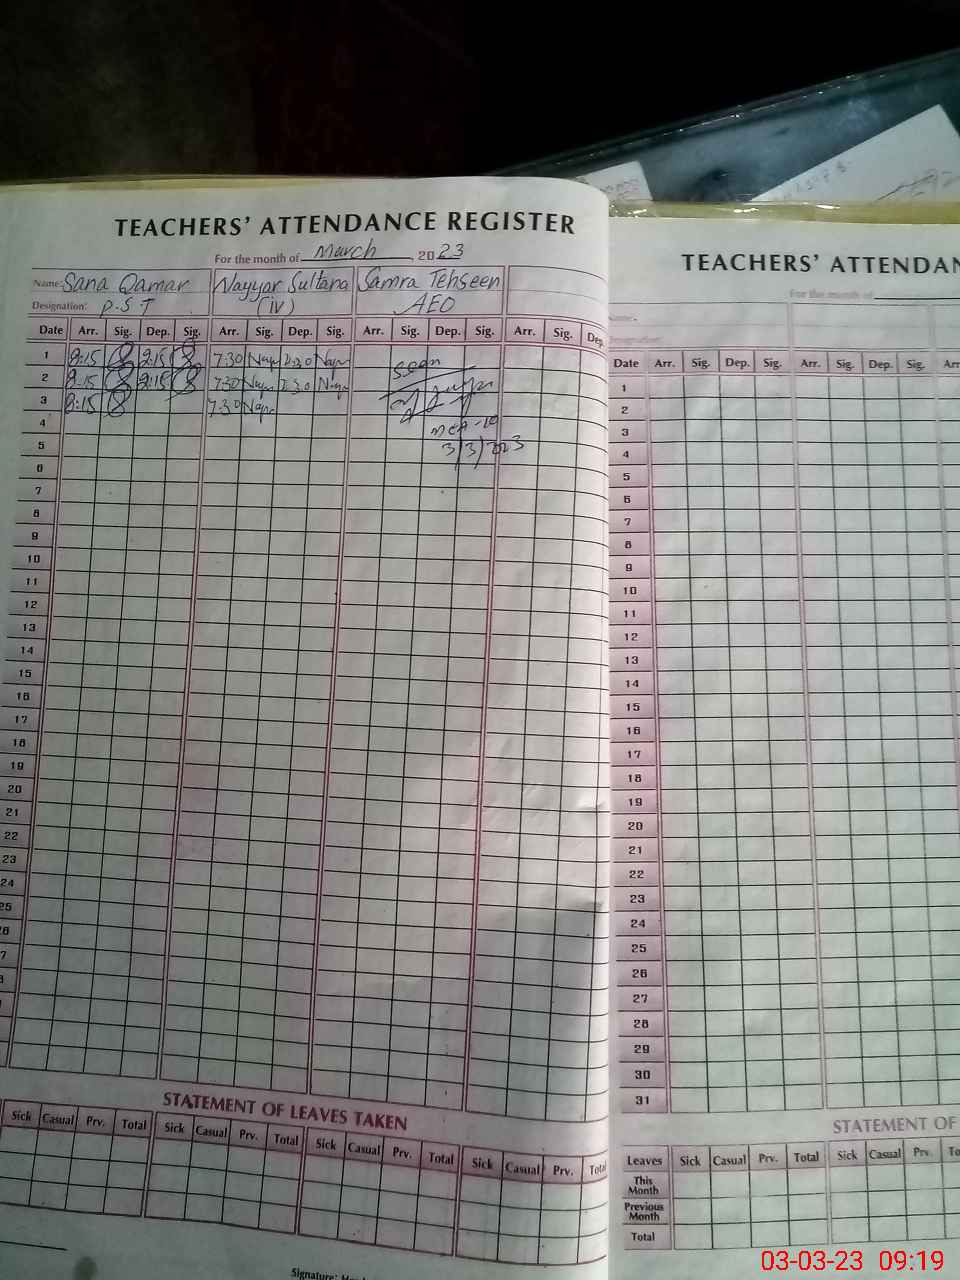 TEACHERS' ATTENDANCE REGISTER
For the month of March, 2023
Name: Sana Qamar Nayyar Sultana Samra Tehseen
Designation: P.S.T (iv) AEO
Date Arr. Sig. Dep. Sig. Arr. Sig. Dep. Sig. Arr. Sig. Dep. Sig. Arr. Sig. Dep.
1 8:15 2:15 7:30 Nayy 2:30 Nayy seen
2 8:15 2:15 7:30 Nayy 2:30 Nayy
3 8:15 7:30 Nayy
4
5 3/3/2023
6
7
8
9
10
11
12
13
14
15
16
17
18
19
20
21
22
23
24
25
STATEMENT OF LEAVES TAKEN
Sick Casual Prv. Total Sick Casual Prv. Total Sick Casual Prv. Total Sick Casual Prv. Total
Signature:
TEACHERS' ATTENDAN
For the month of
Name:
Designation:
Date Arr. Sig. Dep. Sig. Arr. Sig. Dep. Sig. Arr
1
2
3
4
5
6
7
8
9
10
11
12
13
14
15
16
17
18
19
20
21
22
23
24
25
26
27
28
29
30
31
STATEMENT OF
Leaves Sick Casual Prv. Total Sick Casual Prv. To
This Month
Previous Month
Total
03-03-23 09:19